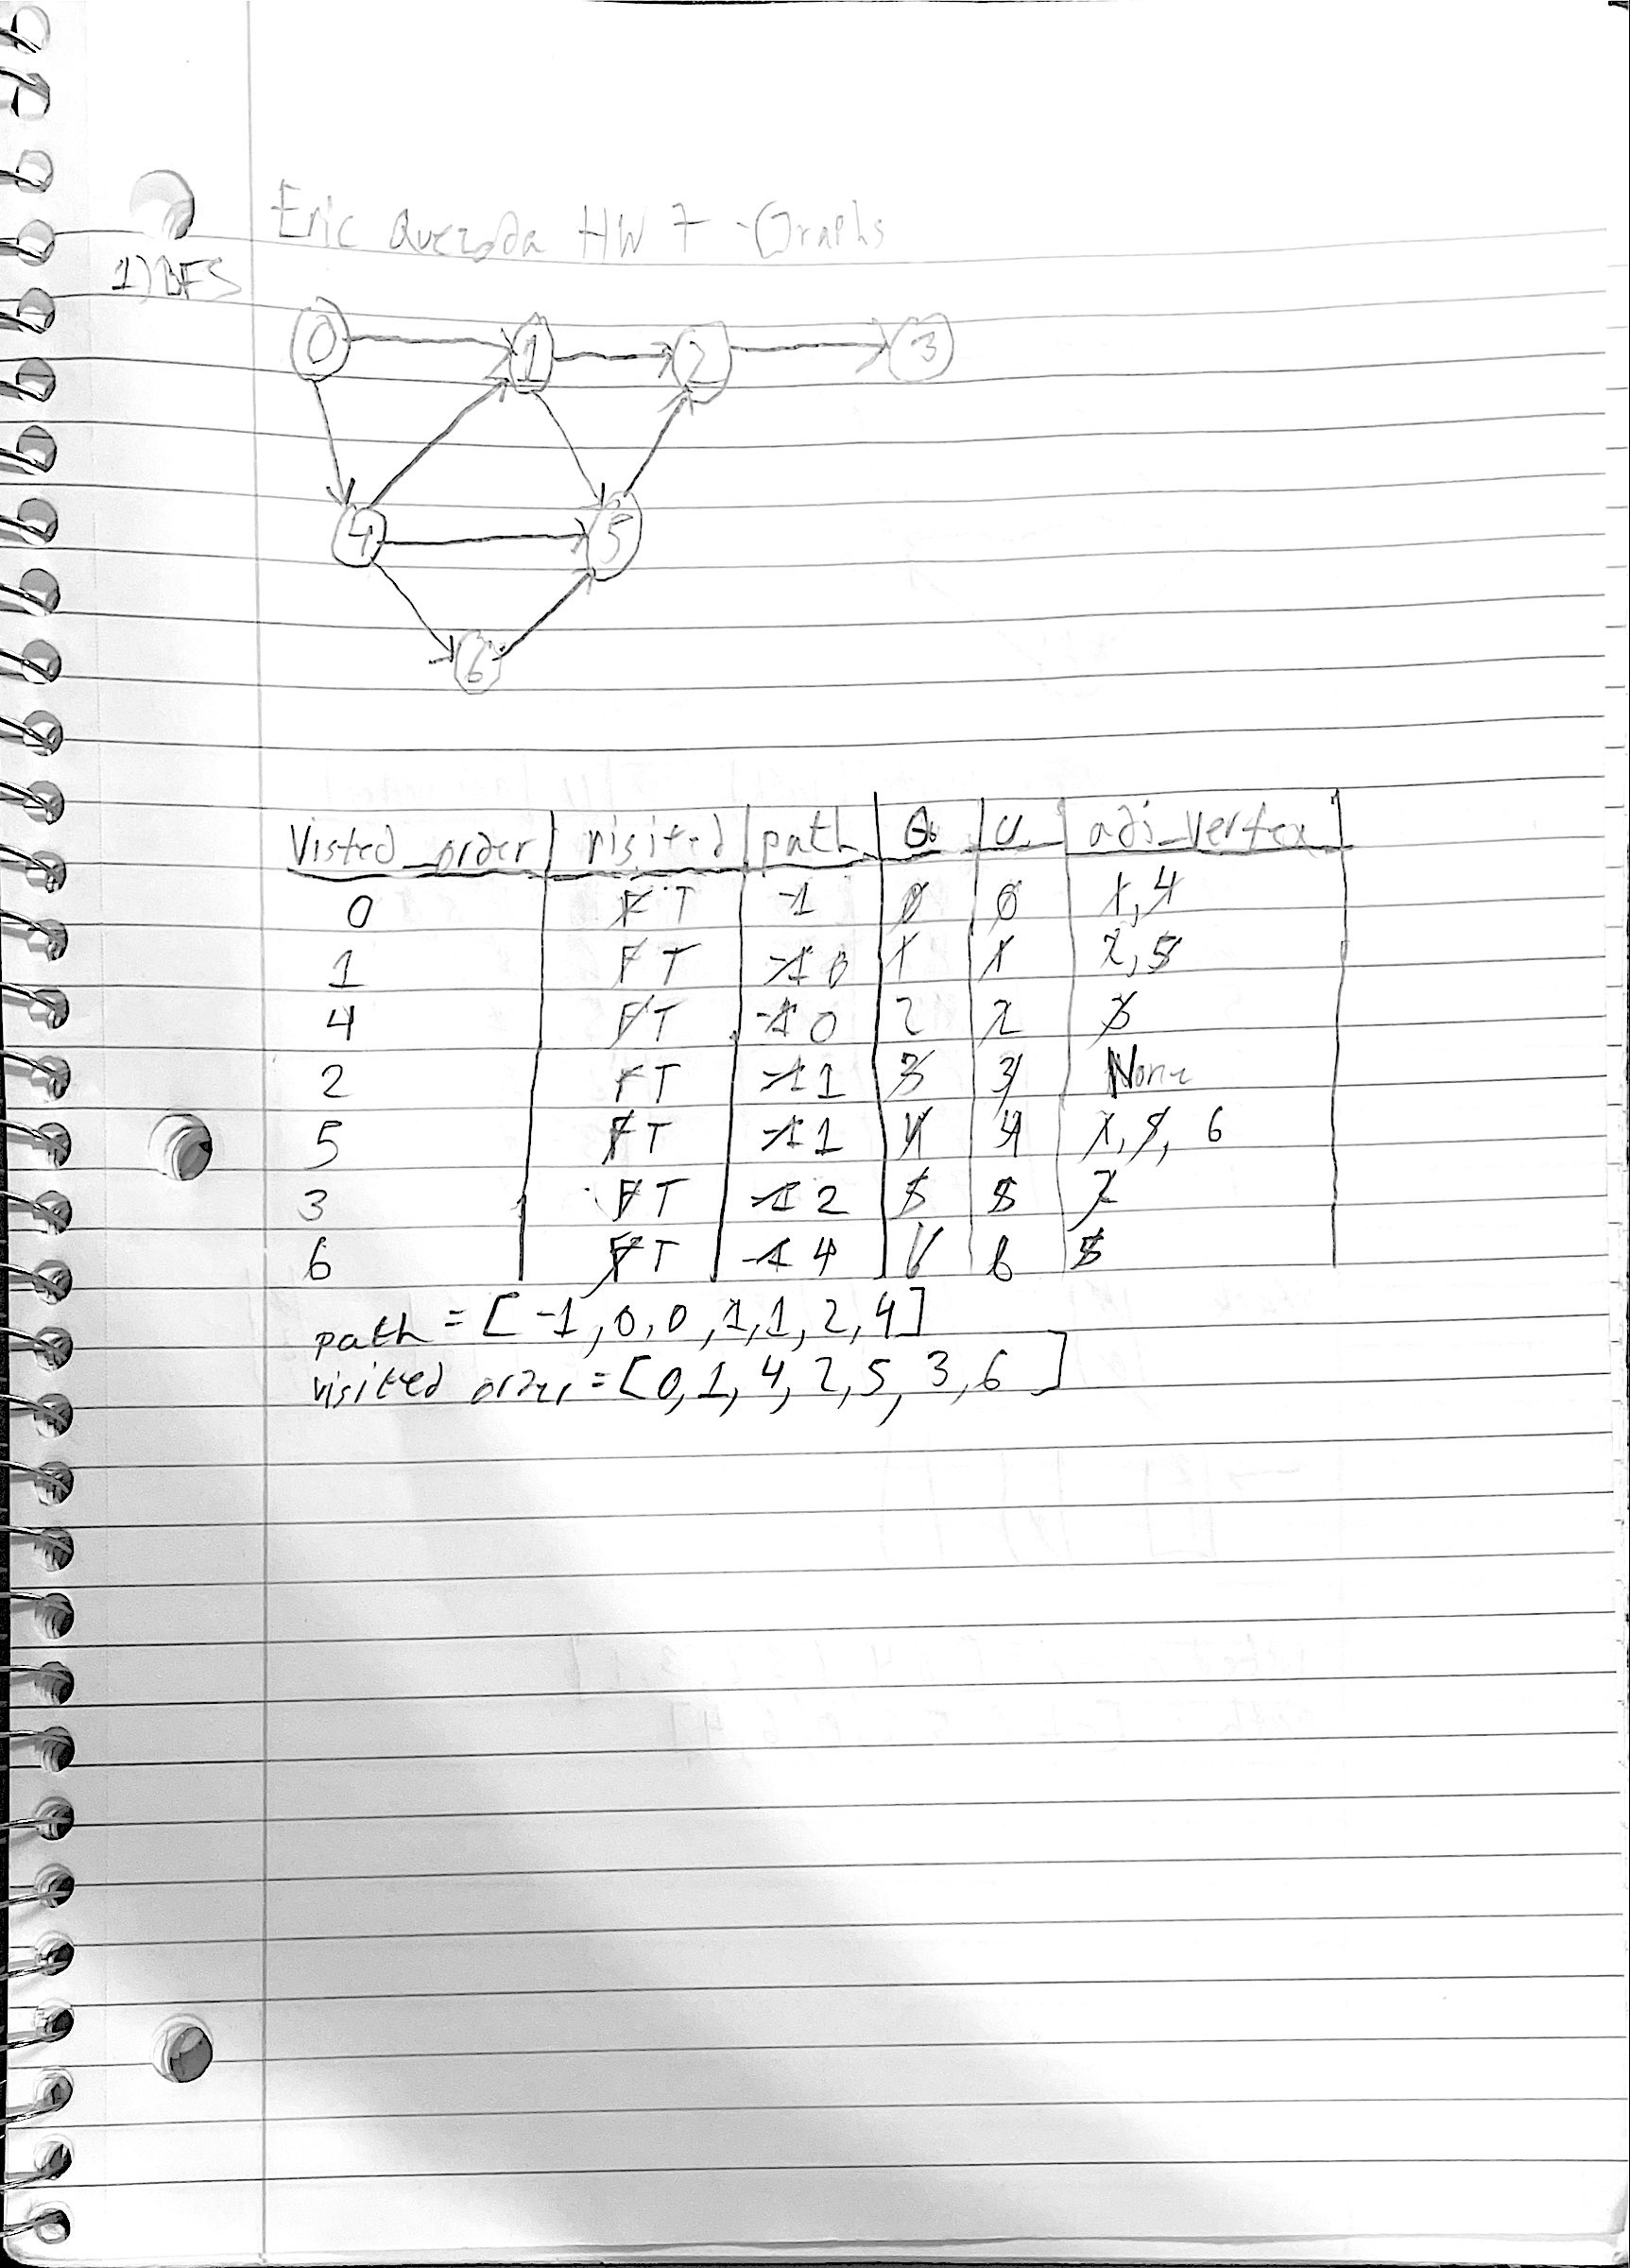 Eric Quezada HW 7 - Graphs
1) BFS
0 1 2 3
4 5
6
Visted_order visited path Q U adj_vertex
0 F T -1 0 0 1, 4
1 F T -1 0 1 1 2, 5
4 F T -1 0 2 2 3
2 F T -1 1 3 3 None
5 F T -1 1 4 4 1, 5, 6
3 F T -1 2 5 5 2
6 F T -1 4 6 6 5
path = [-1, 0, 0, 1, 1, 2, 4]
visited order = [0, 1, 4, 2, 5, 3, 6]